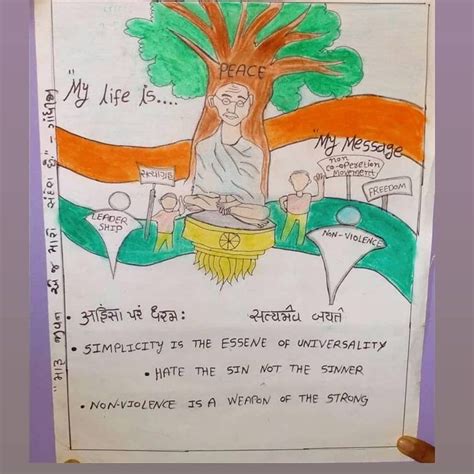 PEACE
"My life is....
"My Message
सत्याग्रह
non
co-operetion
movement
FREEDOM
LEADER
SHIP
NON-VIOLENCE
"મારૂ જીવન એ જ મારો સંદેશ છે" - ગાંધીજી
• अहिंसा परं धरम: सत्यमेव जयते
• SIMPLICITY IS THE ESSENE OF UNIVERSALITY
• HATE THE SIN NOT THE SINNER
• NON-VIOLENCE IS A WEAPON OF THE STRONG